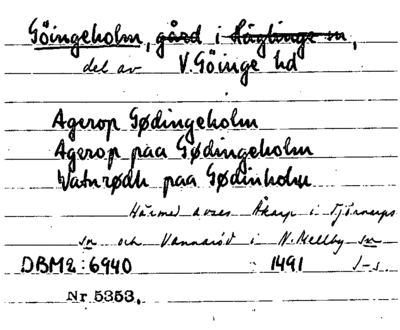 Göingeholm, gård i Häglinge sn,
del av V. Göinge hd
Agerop Gødingeholm
Agerop paa Gødingeholm
Watnrødh paa Gødinholm
Härmed avses Åkarp i Tjörnarps
sn och Vannaröd i N. Mellby sn
DBM2:6940 1491 J-s.
Nr 5353.